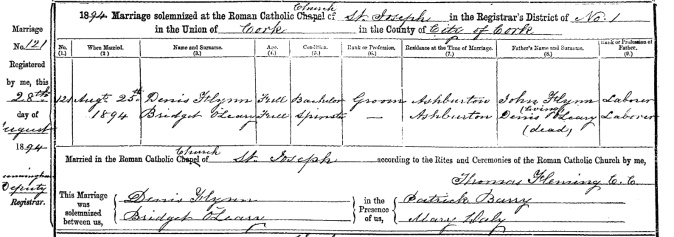 1894 Marriage solemnized at the Roman Catholic Chapel Church of St. Joseph in the Registrar's District of No. 1
in the Union of Cork in the County of City of Cork
Marriage
No. 121
Registered
by me, this
28th
day of
August
1894
Deputy
Registrar.
No. (1.) When Married. (2.) Name and Surname. (3.) Age. (4.) Condition. (5.) Rank or Profession. (6.) Residence at the Time of Marriage. (7.) Father's Name and Surname. (8.) Rank or Profession of Father. (9.)
121 Augt. 25th Denis Flynn Full Bachelor Groom Ashburton John Flynn (living) Laborer
1894 Bridget O'Leary Full Spinster — Ashburton Denis O'Leary (dead) Laborer
Married in the Roman Catholic Chapel Church of St. Joseph according to the Rites and Ceremonies of the Roman Catholic Church by me,
Thomas Fleming C. C.
This Marriage was solemnized between us,
Denis Flynn
Bridget O'Leary
in the Presence of us,
Patrick Barry
Mary Daly